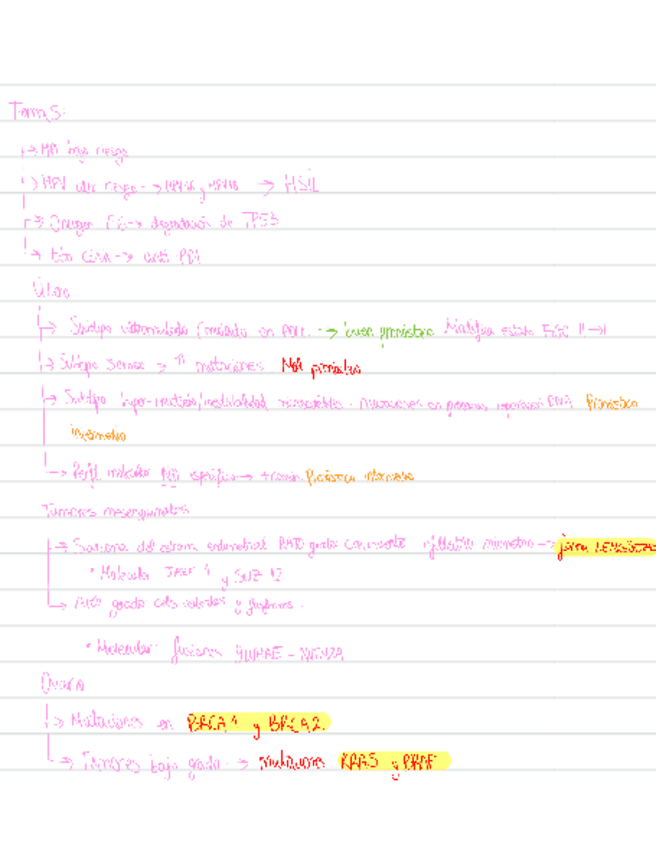 Temas:
→ HPV bajo riesgo
→ HPV alto riesgo → HPV16 y HPV18 → HSIL
→ Oncogen E6 → degradación de TP53
→ anti PD1
Útero
→ Subtipo ultramutado (mutado en POLE → buen pronóstico estadio
→ Subtipo seroso → mutaciones Mal pronóstico
→ Subtipo hiper-mutado/inestabilidad microsatélites. Mutaciones en reparación DNA Pronóstico
intermedio
→ Perfil molecular NO específico → Pronóstico intermedio
Tumores mesenquimales
→ Sarcoma del estroma endometrial BAJO grado infiltra miometrio →
• Molecular JAZF 1 y SUZ 12
→ Alto grado cels redondas y fusiformes.
• Molecular: fusiones YWHAE - NUTM2A
Ovario
→ Mutaciones en BRCA 1 y BRCA 2.
→ Tumores bajo grado → mutaciones KRAS y BRAF